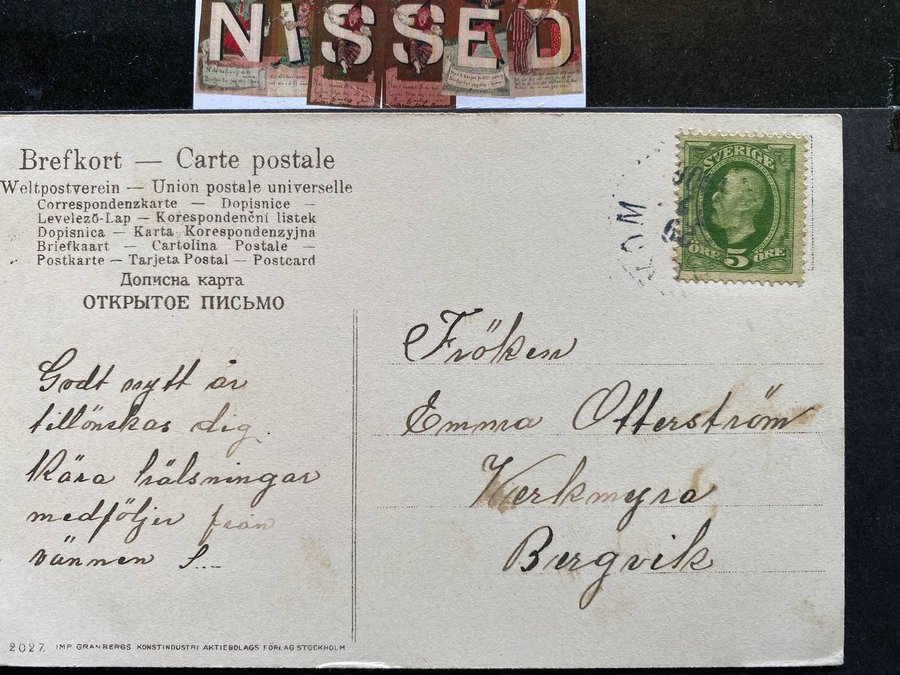 NISSED
Brefkort — Carte postale
Weltpostverein — Union postale universelle
Correspondenzkarte — Dopisnice —
Levelezõ-Lap — Korespondenční listek
Dopisnica — Karta Korespondenzyjna
Briefkaart — Cartolina Postale —
Postkarte — Tarjeta Postal — Postcard
Дописна карта
ОТКРЫТОЕ ПИСЬМО
SVERIGE
ÖRE 5 ÖRE
Godt nytt år
tillönskas dig.
Kära hälsningar
medföljer från
vännen S...
Fröken
Emma Otterström
Verkmyra
Bergvik
2027. IMP GRANBERGS KONSTINDUSTRI AKTIEBOLAGS FÖRLAG STOCKHOLM